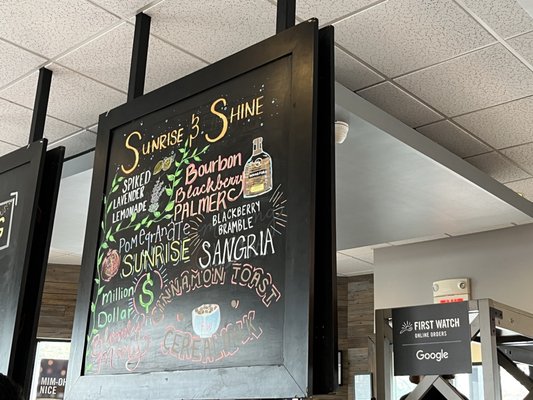 SUNRISE & SHINE
SPIKED
LAVENDER
LEMONADE
BOURBON
BLACKBERRY
PALMER
BLACKBERRY
BRAMBLE
SANGRIA
POMEGRANATE
SUNRISE
MILLION
DOLLAR
$
CINNAMON TOAST
CEREAL
FIRST WATCH
ONLINE ORDERS
Google
MIM-OH
NICE